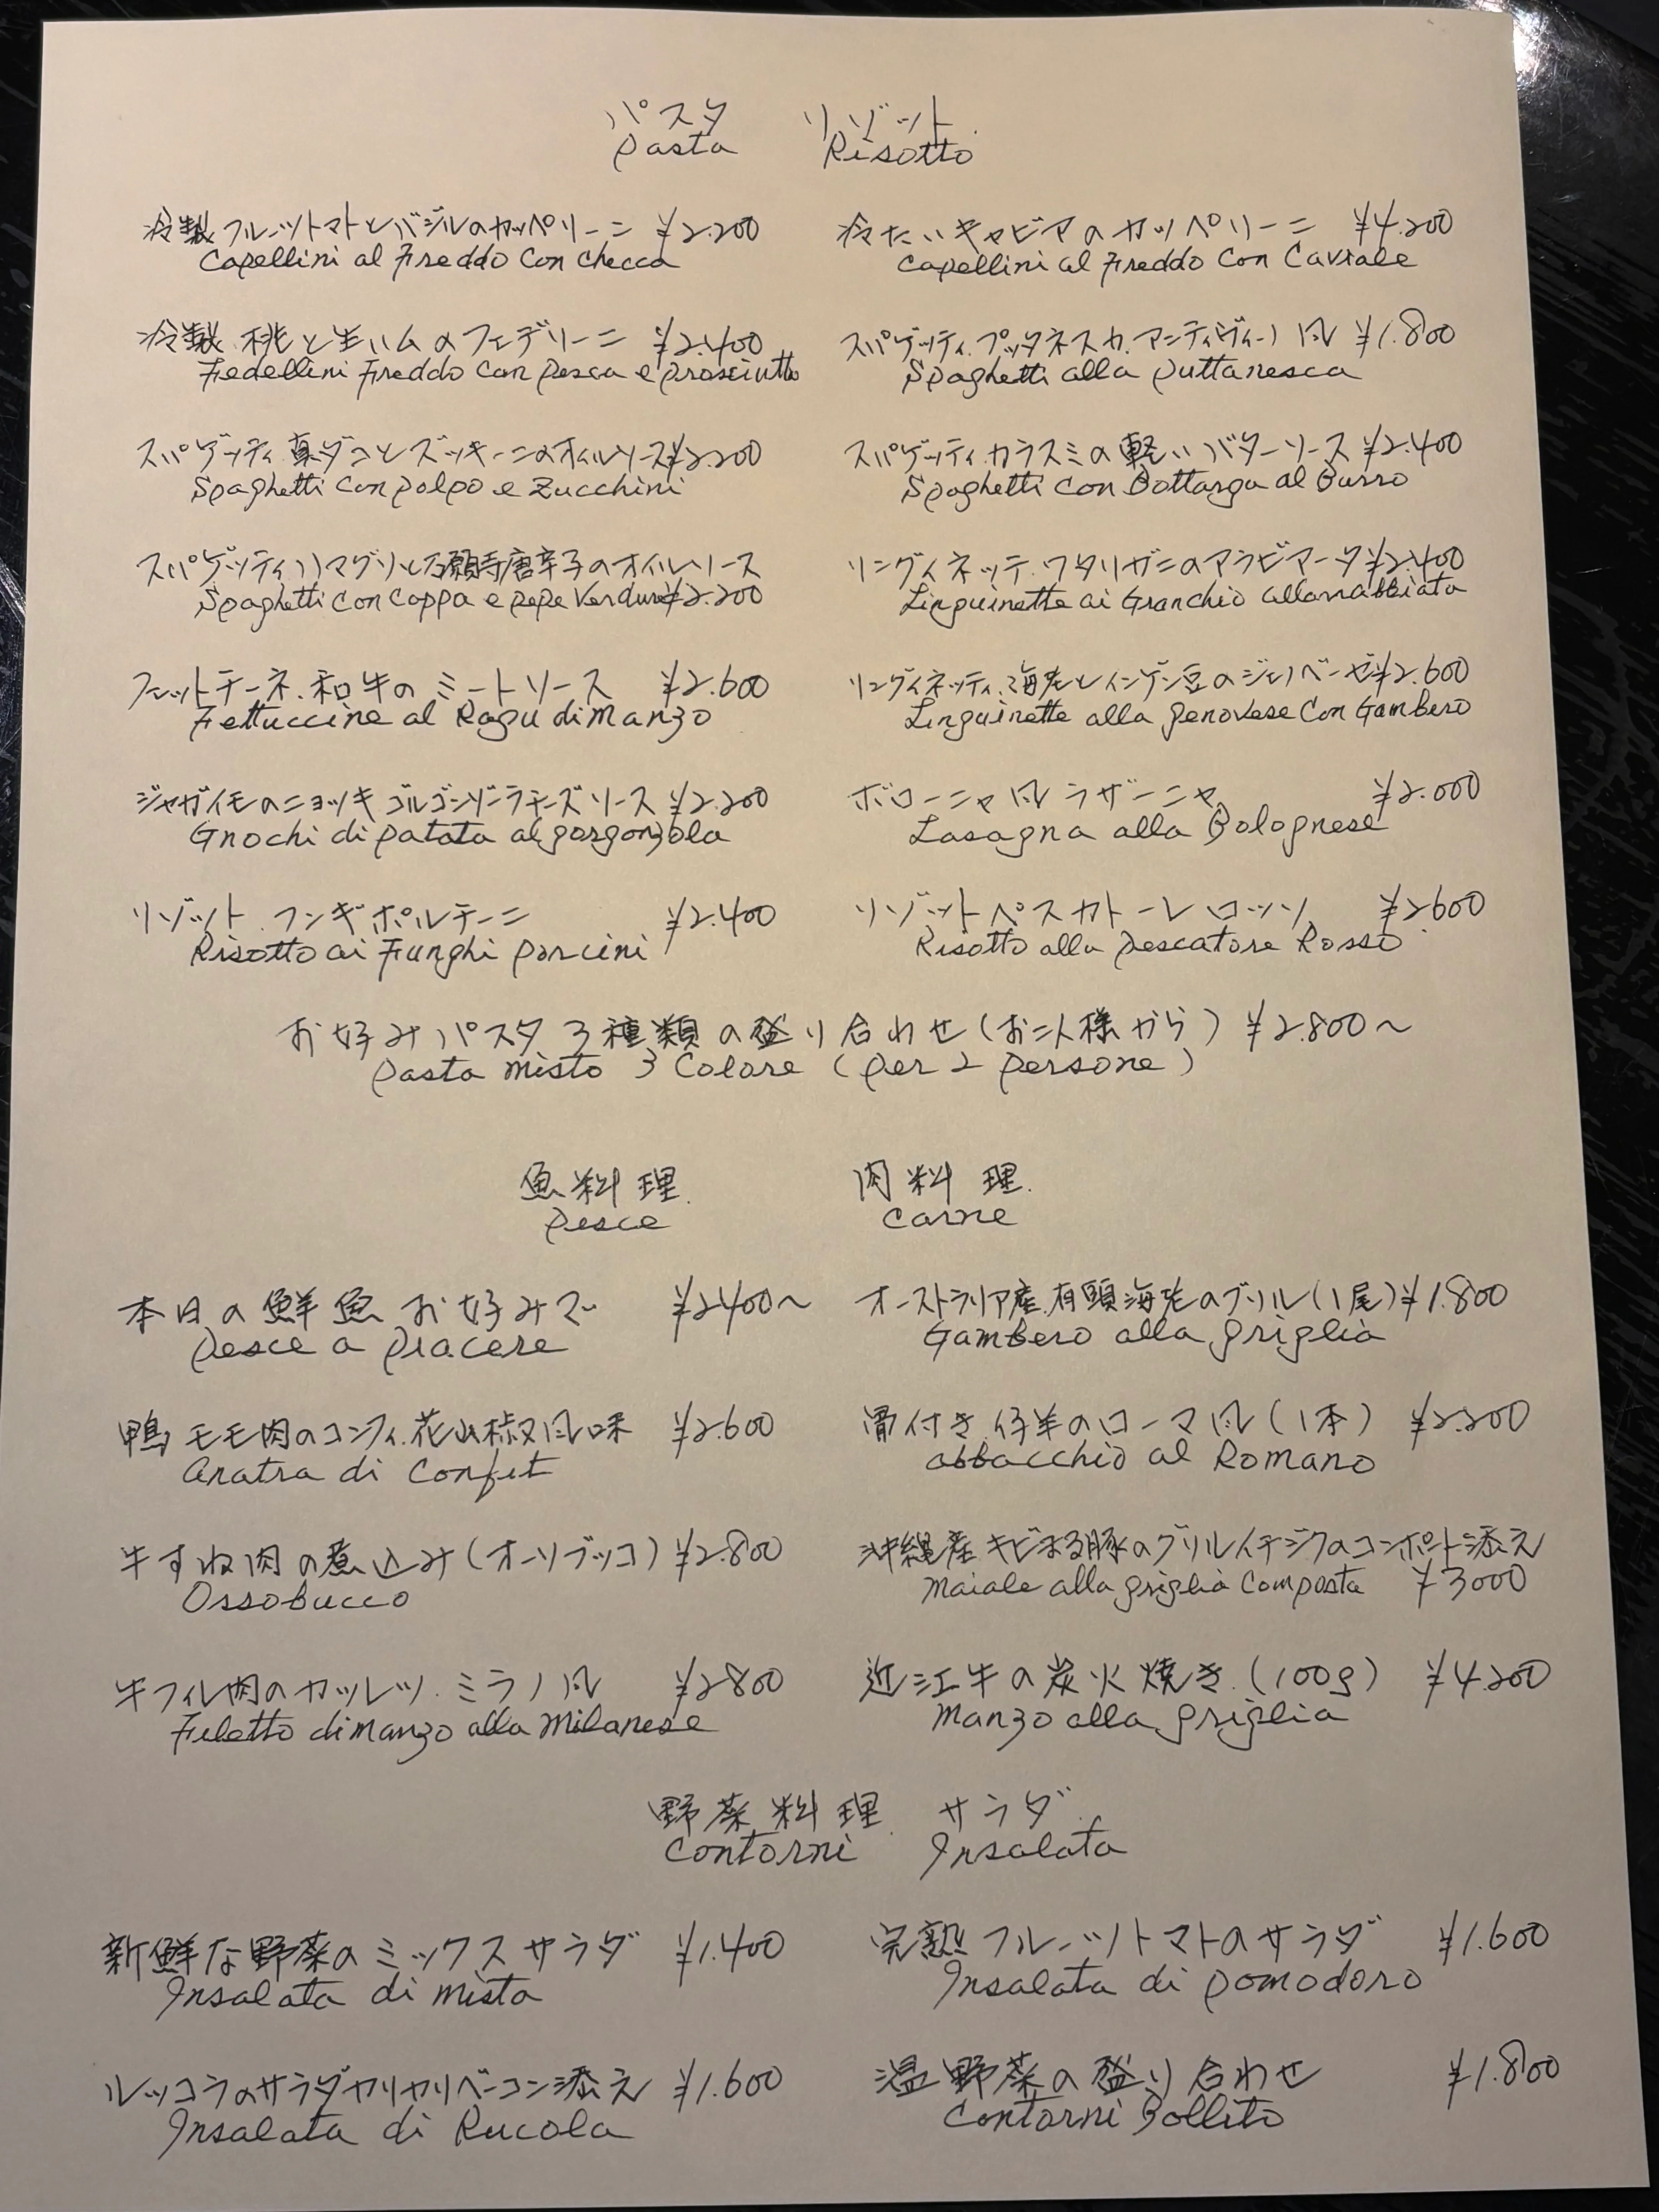 パスタ リゾット
Pasta Risotto
冷製フルーツトマトとバジルのカッペリーニ ¥2.200
Capellini al Freddo Con checca
冷たいキャビアのカッペリーニ ¥4.200
Capellini al Freddo Con Caviale
冷製 桃と生ハムのフェデリーニ ¥2.400
Fedellini Freddo Con Pesca e Prosciutto
スパゲッティ プッタネスカ アンティヴィーノ風 ¥1.800
Spaghetti alla Puttanesca
スパゲッティ 真ダコとズッキーニのオイルソース ¥2.200
Spaghetti Con Polpo e Zucchini
スパゲッティ カラスミの軽いバターソース ¥2.400
Spaghetti Con Bottarga al Burro
スパゲッティ ハマグリと万願寺唐辛子のオイルソース
Spaghetti Con Coppa e Pepe Verdure ¥2.200
リングイネッテ ワタリガニのアラビアータ ¥2.400
Linguinette ai Granchio allarrabbiata
フェットチーネ 和牛のミートソース ¥2.600
Fettuccine al Ragu di Manzo
リングイネッティ 海老とインゲン豆のジェノベーゼ ¥2.600
Linguinette alla Genovese Con Gambero
ジャガイモのニョッキ ゴルゴンゾーラチーズソース ¥2.200
Gnochi di Patata al gorgonzola
ボローニャ風ラザーニャ ¥2.000
Lasagna alla Bolognese
リゾット フンギポルチーニ ¥2.400
Risotto ai Funghi Porcini
リゾットペスカトーレ ロッソ ¥2600
Risotto alla Pescatore Rosso
お好みパスタ3種類の盛り合わせ(お二人様から) ¥2.800〜
Pasta Misto 3 Colore (Per 2 Persone)
魚料理 肉料理
Pesce Carne
本日の鮮魚 お好みで ¥2400〜
Pesce a Piacere
オーストラリア産 有頭海老のグリル(1尾) ¥1.800
Gambero alla griglia
鴨モモ肉のコンフィ 花山椒風味 ¥2.600
Anatra di Confit
骨付き仔羊のローマ風(1本) ¥2.200
abbacchio al Romano
牛すね肉の煮込み(オーソブッコ) ¥2.800
Ossobucco
沖縄産 キビまる豚のグリル イチジクのコンポート添え
Maiale alla griglia Composta ¥3000
牛フィレ肉のカツレツ ミラノ風 ¥2800
Filetto di Manzo alla Milanese
近江牛の炭火焼き (100g) ¥4.200
Manzo alla griglia
野菜料理 サラダ
Contorni Insalata
新鮮な野菜のミックスサラダ ¥1.400
Insalata di Mista
完熟フルーツトマトのサラダ ¥1.600
Insalata di Pomodoro
ルッコラのサラダ カリカリベーコン添え ¥1.600
Insalata di Rucola
温野菜の盛り合わせ ¥1.800
Contorni Bollito